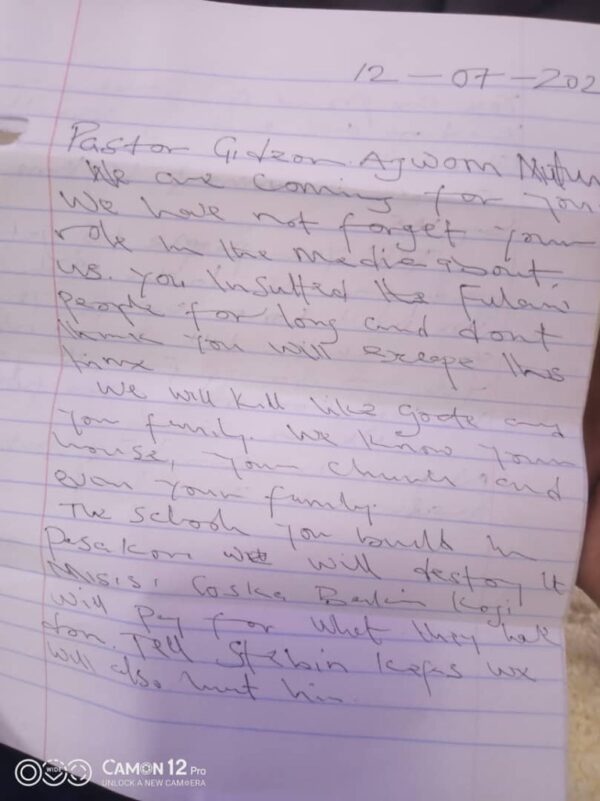 12-07-202
Pastor Gideon Agwom Mutum
We are coming for you
We have not forget your
role in the media about
us. you insulted the Fulani
people for long and dont
think you will escape this
time
We will kill like goate and
your family. We know your
house, your church and
even your family.
The school you build in
Pasakori we will destory it
Misisi Goska Bakin Kogi
will pay for what they have
don. Tell Stebin Kefas we
will also hunt him
WIDE
CAMON 12 Pro
UNLOCK A NEW CAMERA